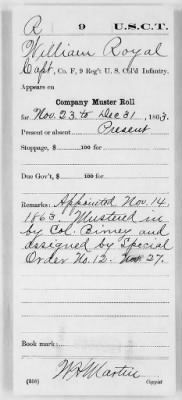 R 9 U.S.C.T.
William Royal
Capt, Co. F, 9 Reg't U. S. Col'd Infantry.
Appears on
Company Muster Roll
for Nov. 23 to Dec 31, 1863.
Present or absent Present
Stoppage, $ 100 for
Due Gov't, $ 100 for
Remarks: Appointed Nov. 14
1863. Mustered in
by Col. Birney and
assigned by Special
Order No. 12. Nov 27.
Book mark:
W H Martin
(359) Copyist